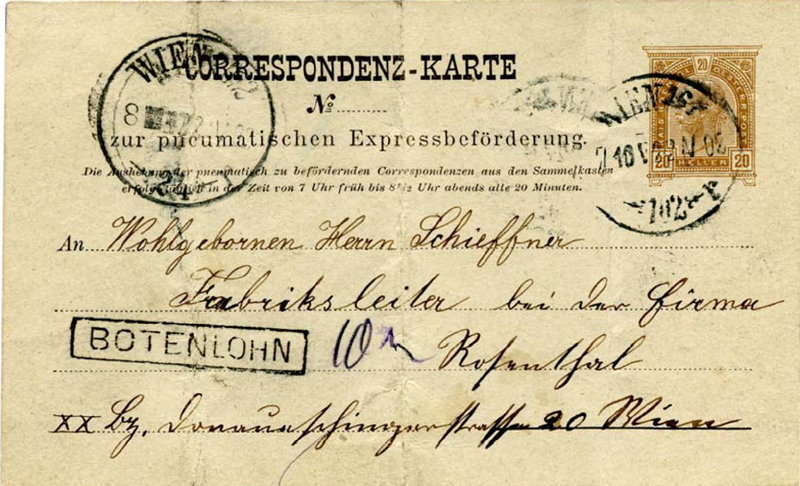 CORRESPONDENZ-KARTE
No
zur pneumatischen Expressbeförderung.
Die Aushebung der pneumatisch zu befördernden Correspondenzen aus den Sammelkasten
erfolgt täglich in der Zeit von 7 Uhr früh bis 8½ Uhr abends alle 20 Minuten.
WIEN
8
24
WIEN
102
20
20 HELLER 20
An Wohlgebornen Herrn Schieffner
Fabriksleiter bei der Firma
BOTENLOHN 10
Rosenthal
XX Bz. Donaueschingerstrasse 20 Wien